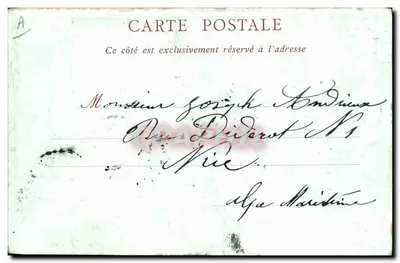 A
CARTE POSTALE
Ce côté est exclusivement réservé à l'adresse
Monsieur Joseph Andrieux
Rue Diderot N1
Nice
Alpes Maritime